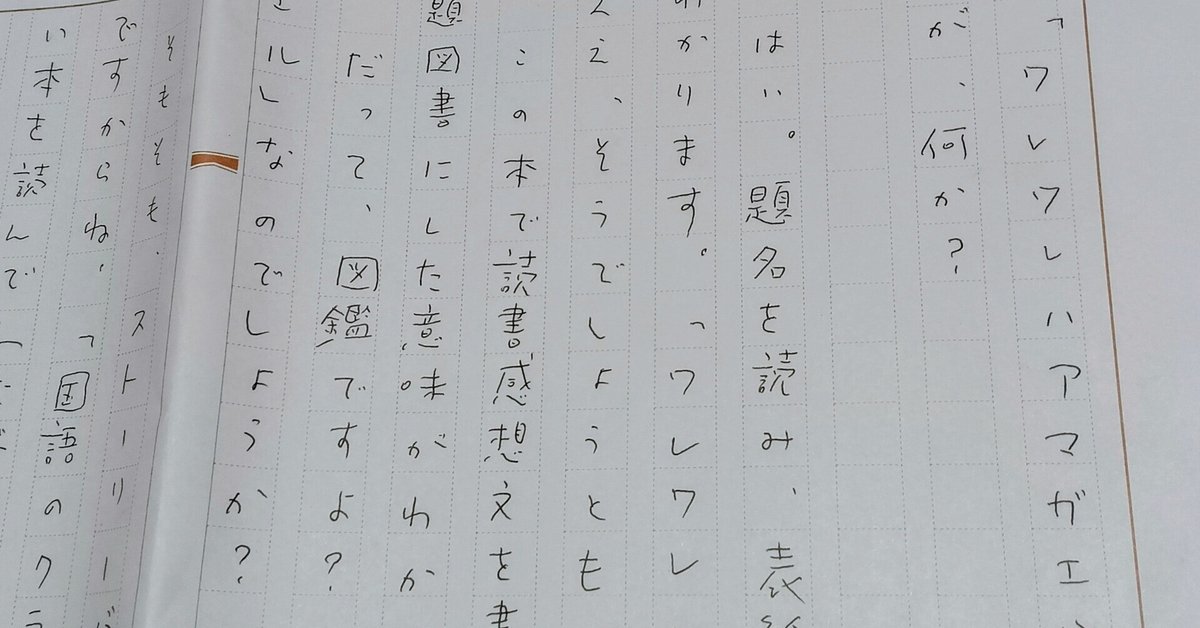 「ワレワレハアマガエ
が、何か?
はい。題名を読み、表
わかります。「ワレワレ
ええ、そうでしょうとも
この本で読書感想文を書
題図書にした意味がわか
だって、図鑑ですよ?
ルしなのでしょうか?
そもそも、ストーリーが
ですからね、「国語のクラ
い本を読んで